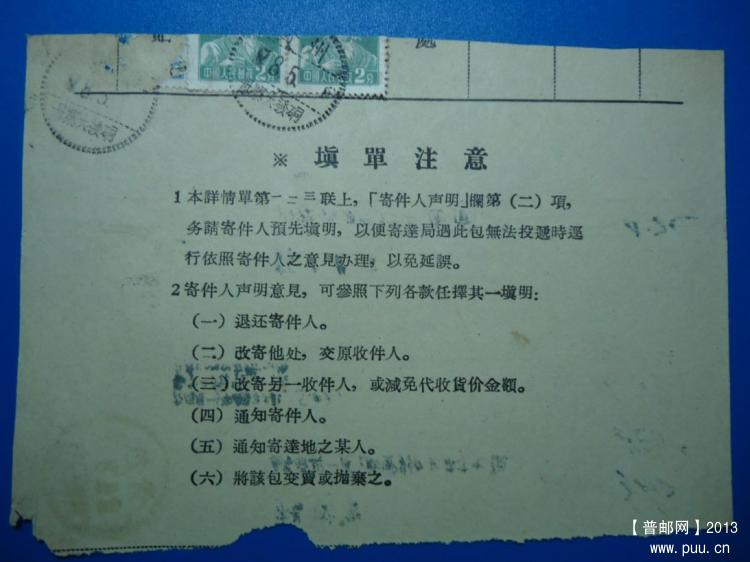 中国人民邮政 2分
中国人民邮政 2分
州
※ 塡單注意
1 本詳情單第一二三联上，「寄件人声明」欄第（二）項，
务請寄件人預先塡明，以便寄達局遇此包無法投遞時逕
行依照寄件人之意見办理，以免延誤。
2 寄件人声明意見，可參照下列各款任擇其一塡明：
（一）退还寄件人。
（二）改寄他处，交原收件人。
（三）改寄另一收件人，或減免代收貨价金額。
（四）通知寄件人。
（五）通知寄達地之某人。
（六）將該包变賣或抛棄之。
【普邮网】2013
www.puu.cn